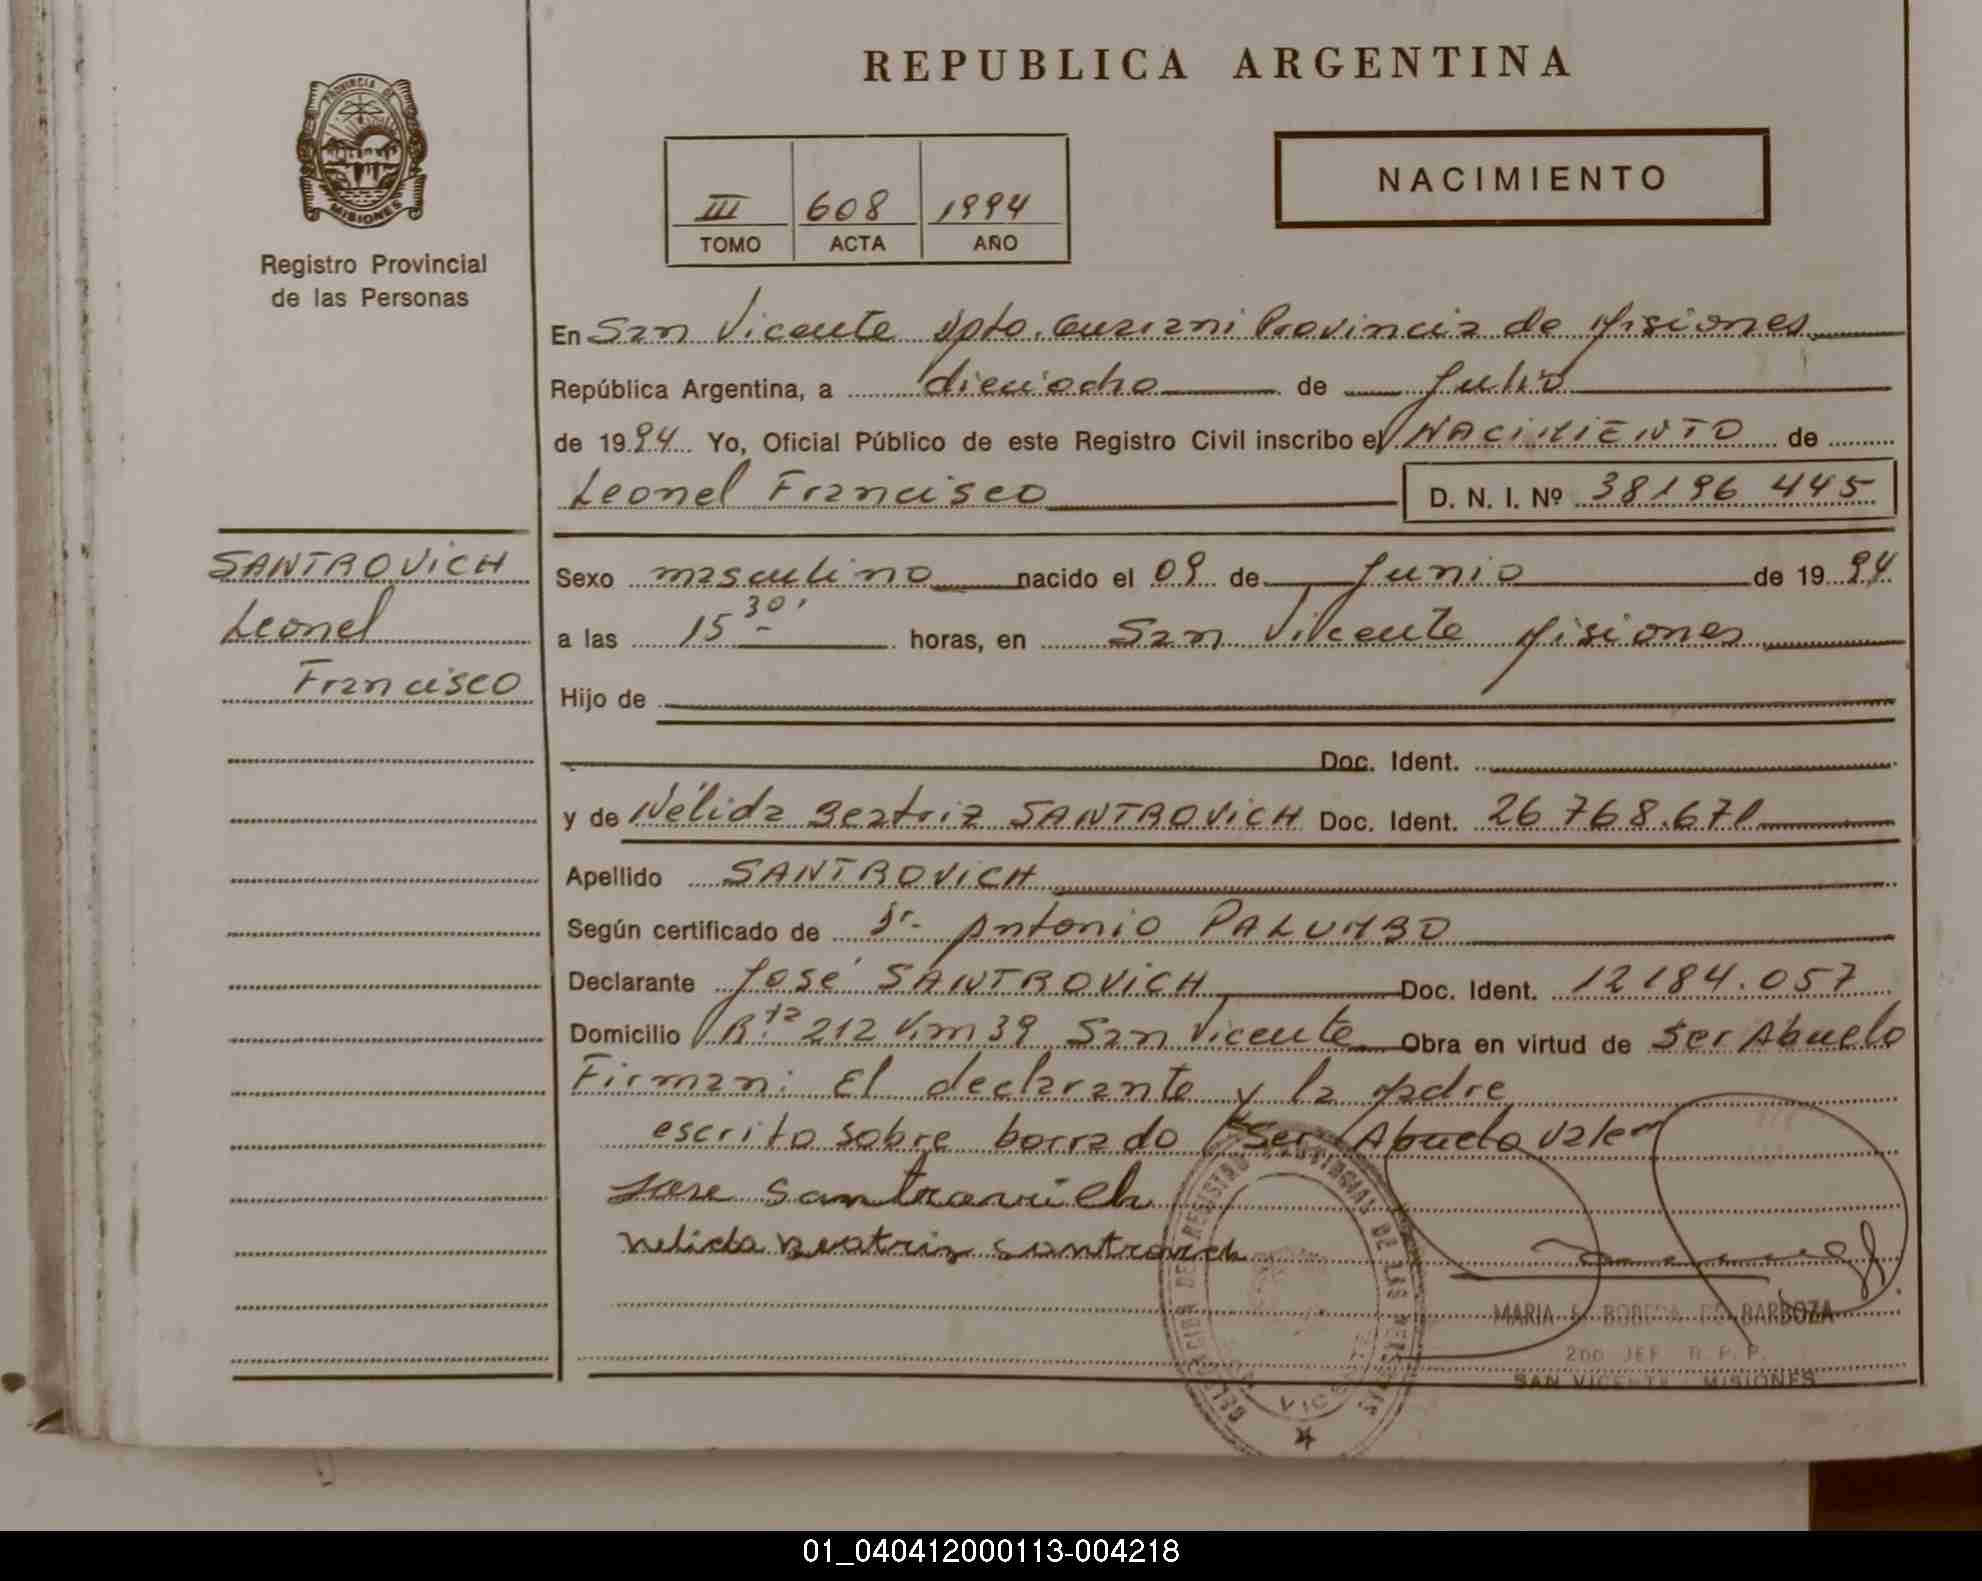 REPUBLICA ARGENTINA
PROVINCIA DE
MISIONES
Registro Provincial
de las Personas
NACIMIENTO
III 608 1994
TOMO ACTA AÑO
En San Vicente Dpto. Guarani Provincia de Misiones
República Argentina, a dieciocho de Julio
de 1994 Yo, Oficial Público de este Registro Civil inscribo el NACIMIENTO de
Leonel Francisco D. N. I. Nº 38196 445
SANTROVICH
Leonel
Francisco
Sexo masculino nacido el 09 de Junio de 1994
a las 15 30' horas, en San Vicente Misiones
Hijo de
Doc. Ident.
y de Nélida Beatriz SANTROVICH Doc. Ident. 26 768.671
Apellido SANTROVICH
Según certificado de Dr. Antonio PALUMBO
Declarante José SANTROVICH Doc. Ident. 12184.057
Domicilio R. 212 Km 39 San Vicente Obra en virtud de Ser Abuelo
Firman: El declarante y la Madre
escrito sobre borrado "Ser Abuelo vale"
Jose Santrovich
Nelida Beatriz Santrovich
MARIA BARBOZA
2DO JEF R. P. P.
SAN VICENTE MISIONES
01_040412000113-004218